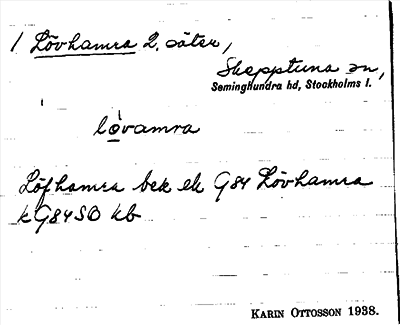 1 Lövhamra 2. säter,
Skepptuna sn,
Seminghundra hd, Stockholms l.
lövamra
Löfhamra bek ek G84 Lövhamra
kG84SO kb
KARIN OTTOSSON 1938.